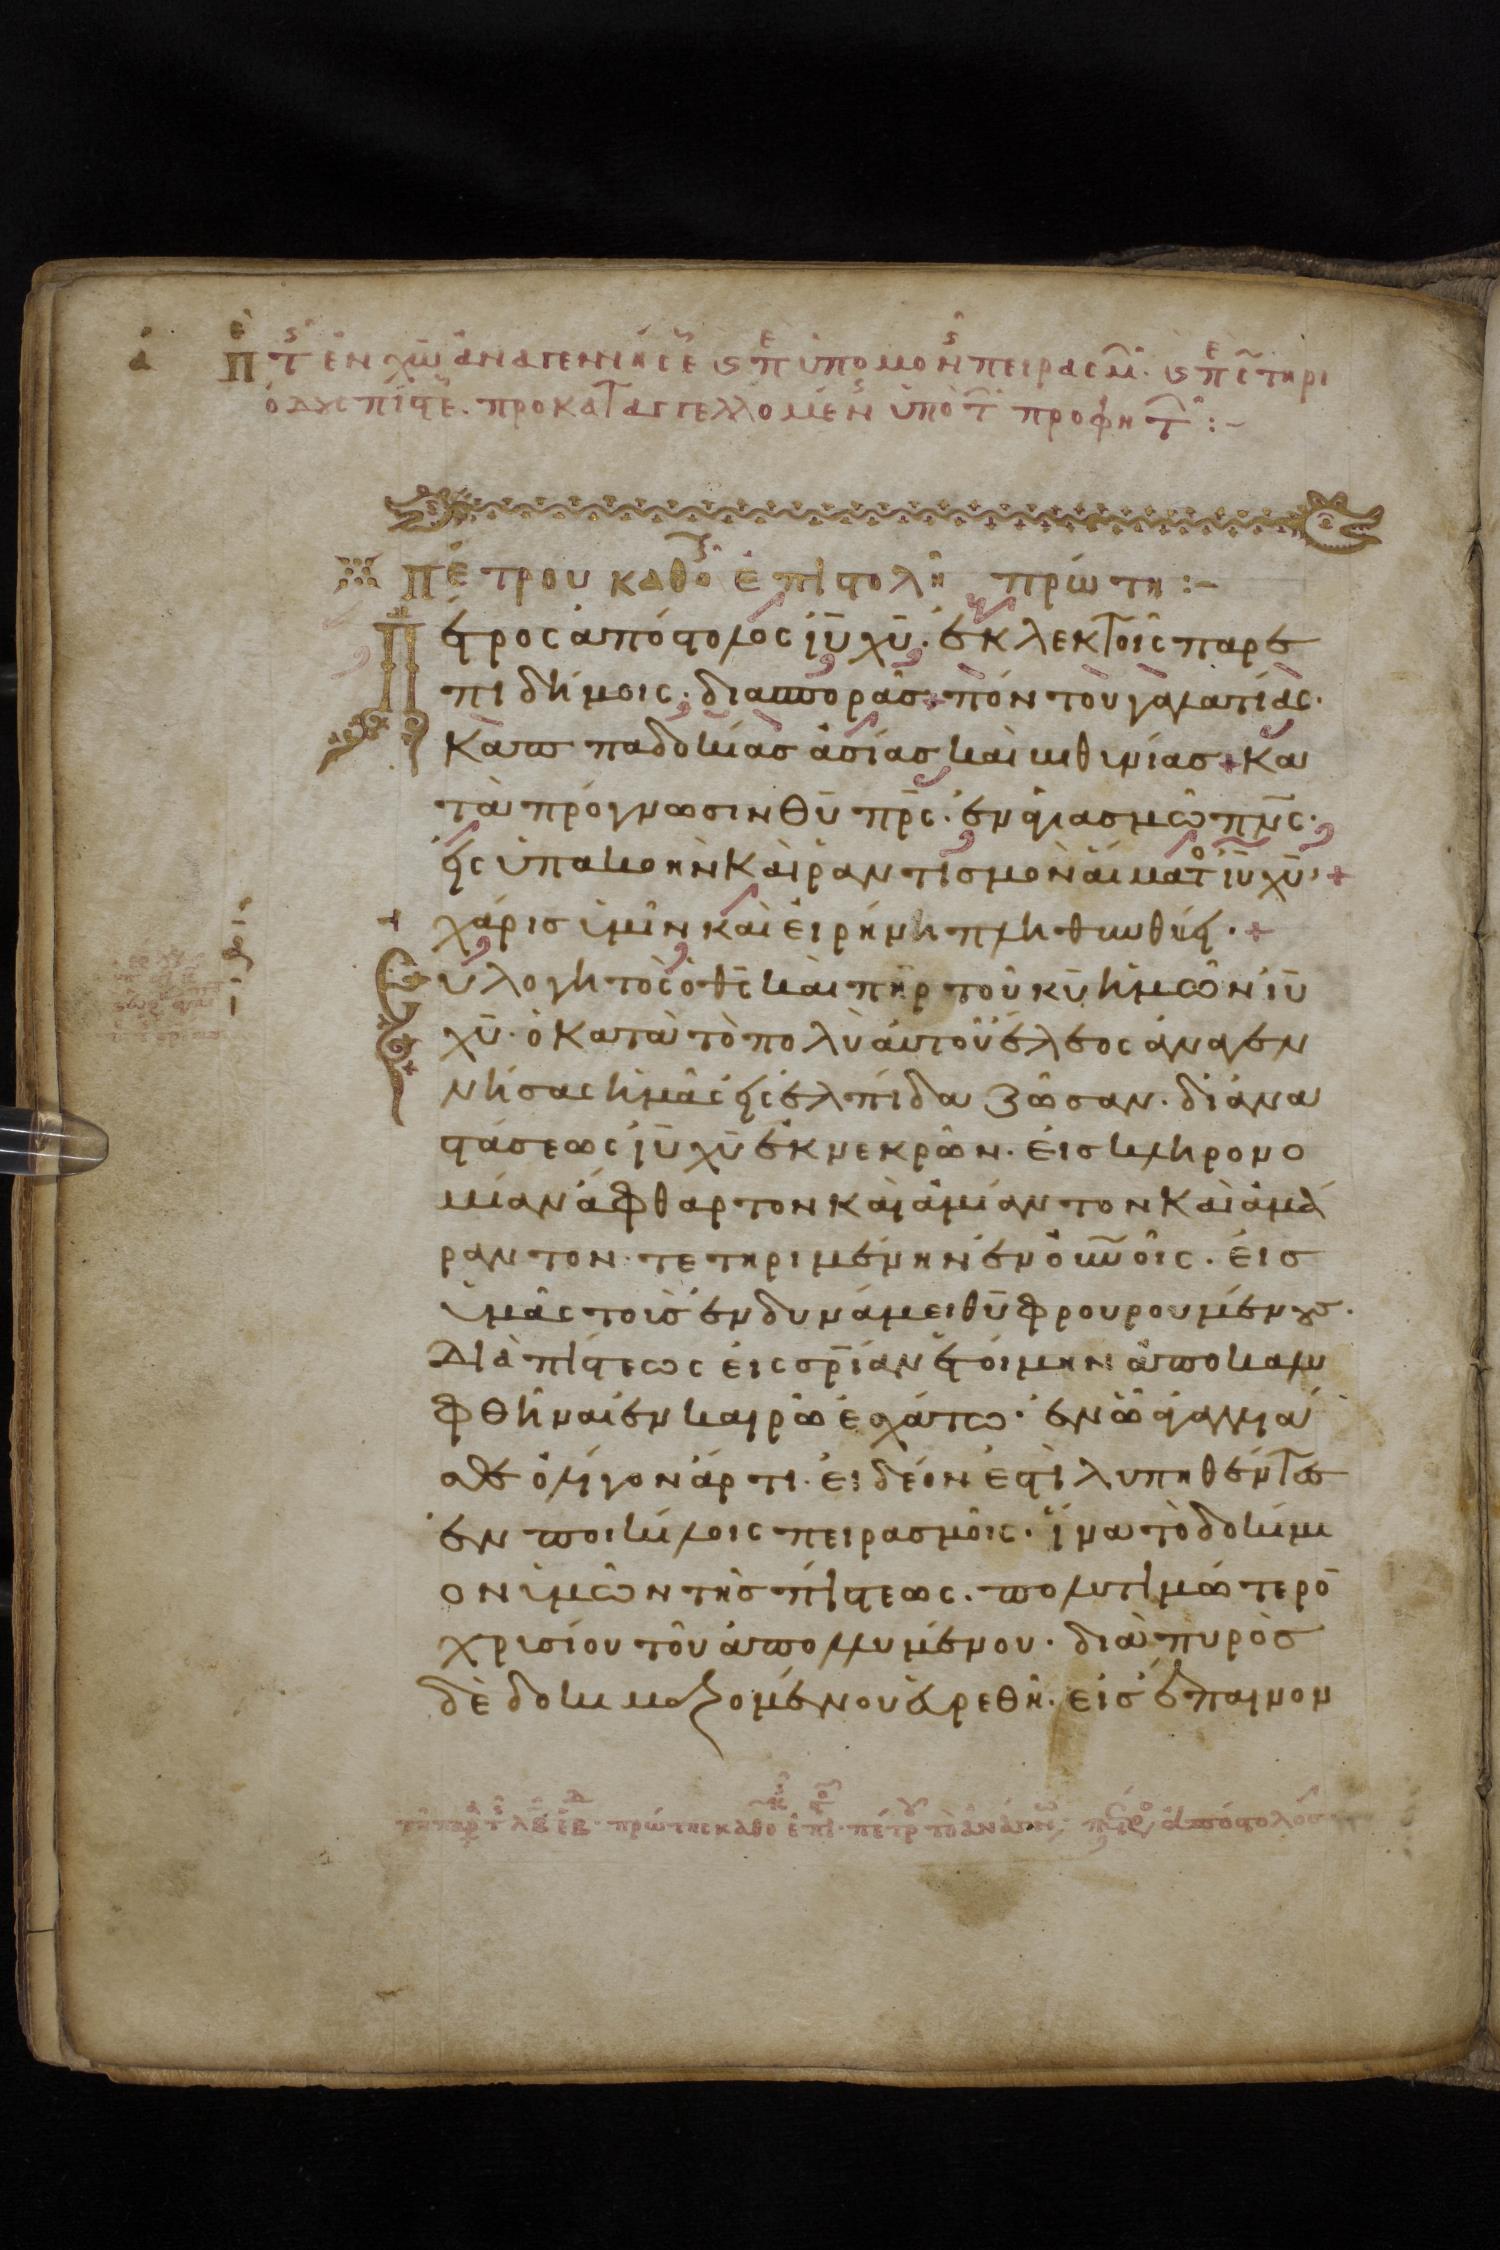 ά Πὲ τ̑ς ἐν χ̅ω̅ ἀναγεννήσε ϛ πὲ ὑπομονῆς πειρασμ̑. ϛ πὲ σ̅τηρι
ὁδους πίστε. προκαταγγελλομένς ὑπὸ τ̑ προφητ̑ :-
Πέτρου καθο ἐπιστολὴ πρώτη :-
Πέτρος ἀπόστολος ι̅υ̅ χ̅υ̅. ἐκλεκτοῖς παρε
πιδήμοις. διασπορᾶς + πόντου γαλατίας.
Καππαδοκίας ἀσίας καὶ βιθυνίας + Κα
τὰ πρόγνωσιν θ̅υ̅ π̅ρ̅ς̅. ἐν ἁγιασμῶ π̅ν̅ς̅.
εἰς ὑπακοὴν καὶ ῥαντισμὸν αἵματο ι̅υ̅ χ̅υ̅. +
χάρις ὑμῖν καὶ εἰρήνη πληθυνθείη. +
Εὐλογητὸς ὁ θ̅ς̅ καὶ π̅η̅ρ̅ τοῦ κ̅υ̅ ἡμῶν ι̅υ̅
χ̅υ̅. ὁ κατὰ τὸ πολὺ αὐτοῦ ἔλεος ἀναγεν
νήσας ἡμᾶς εἰς ἐλπίδα ζῶσαν. δι ἀνα
στάσεως ι̅υ̅ χ̅υ̅ ἐκ νεκρῶν. εἰς κληρονο
μίαν ἄφθαρτον καὶ ἀμίαντον καὶ ἀμά
ραντον. τετηριμένην ἐν ο̅υ̅νοῖς. εἰς
ὑμᾶς τοὺς ἐν δυνάμει θ̅υ̅ φρουρουμένους.
Διὰ πίστεως εἰς σ̅ρ̅ίαν ἑτοίμην ἀποκαλυ
φθῆναι ἐν καιρῶ ἐσχάτω. ἐν ὧ ἀγαλλιᾶ
σθε ὀλίγον ἄρτι. εἰ δέον ἐστὶ λυπηθέντες
ἐν ποικίλοις πειρασμοῖς. ἵνα τὸ δοκίμι
ον ὑμῶν τῆς πίστεως. πολυτιμώτερο̅
χρυσίου τοῦ ἀπολλυμένου. διὰ πυρὸς
δὲ δοκιμαζομένου εὑρεθῆ. εἰς ἔπαινον